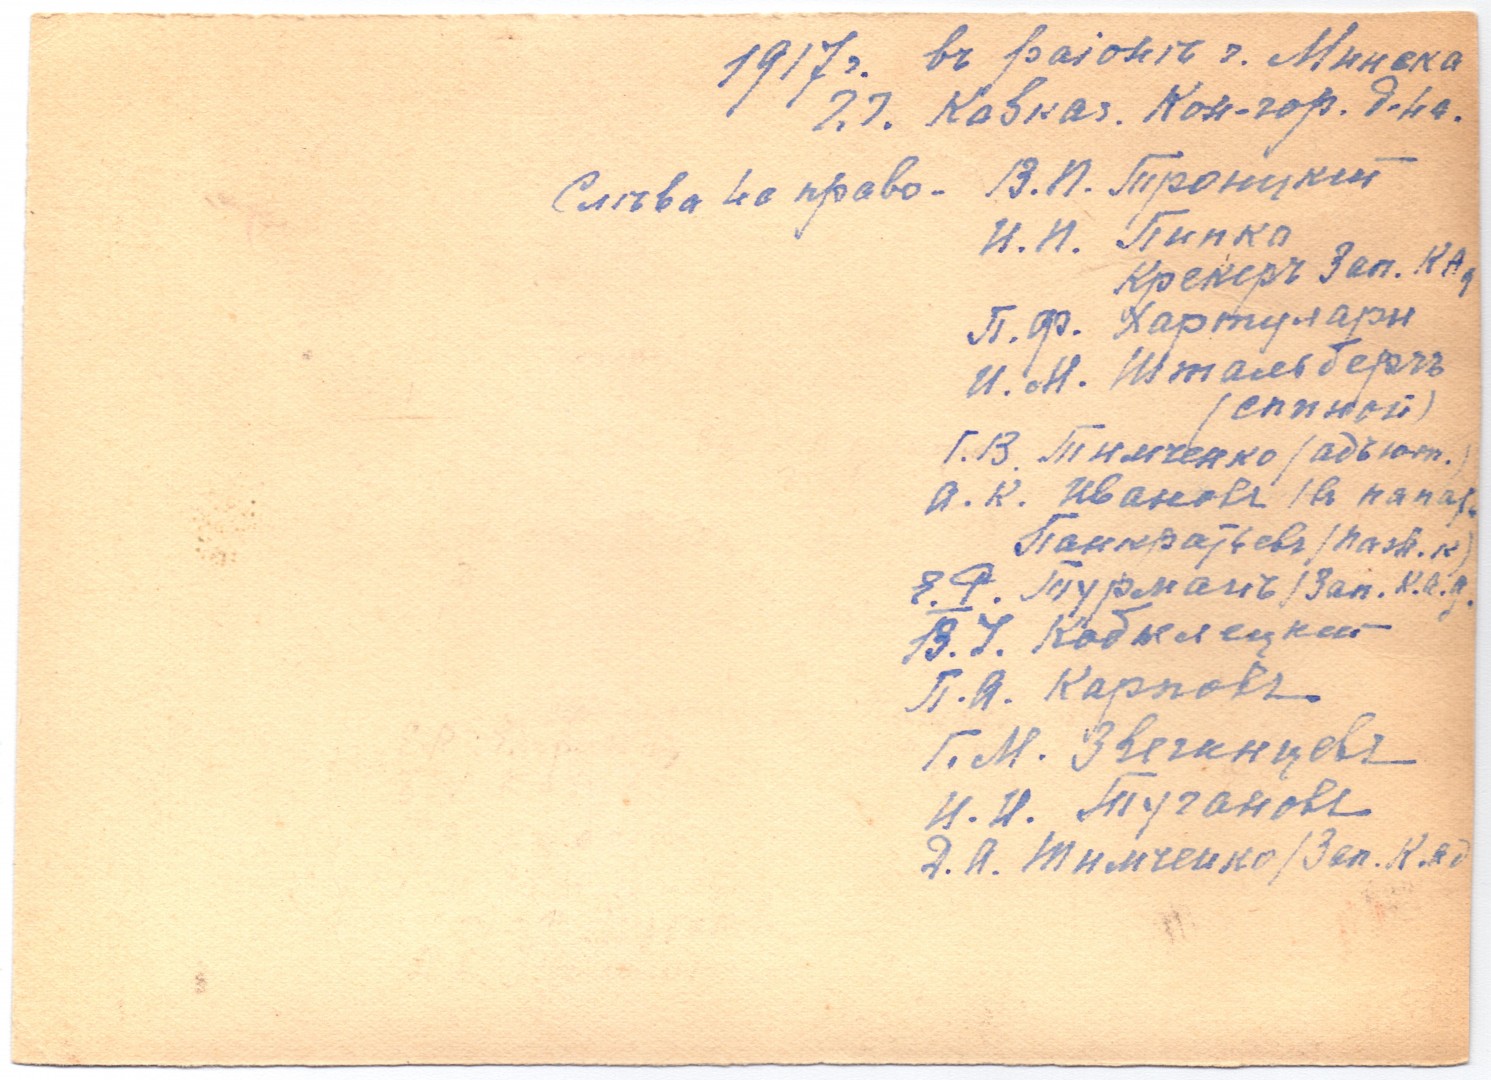 1917 г. въ раіонѣ г. Минска
2.й. Кавказ. Кон-гор. д-на.
Слѣва на право - В.П. Троицкій
И.И. Пипко
Крекеръ Зап. К А д
П.Ф. Хартулари
И.М. Штальбергъ
(спиной)
Г.В. Тимченко (адъют.)
А.К. Ивановъ (въ папах.
Панкратьевъ (Паж. к)
Е.Ф. Турманъ (Зап. К.а.д.
В.У. Кобылецкій
П.А. Карповъ
Г.М. Звегинцевъ
И.И. Тугановъ
Д.А. Тимченко (Зап. К.ад